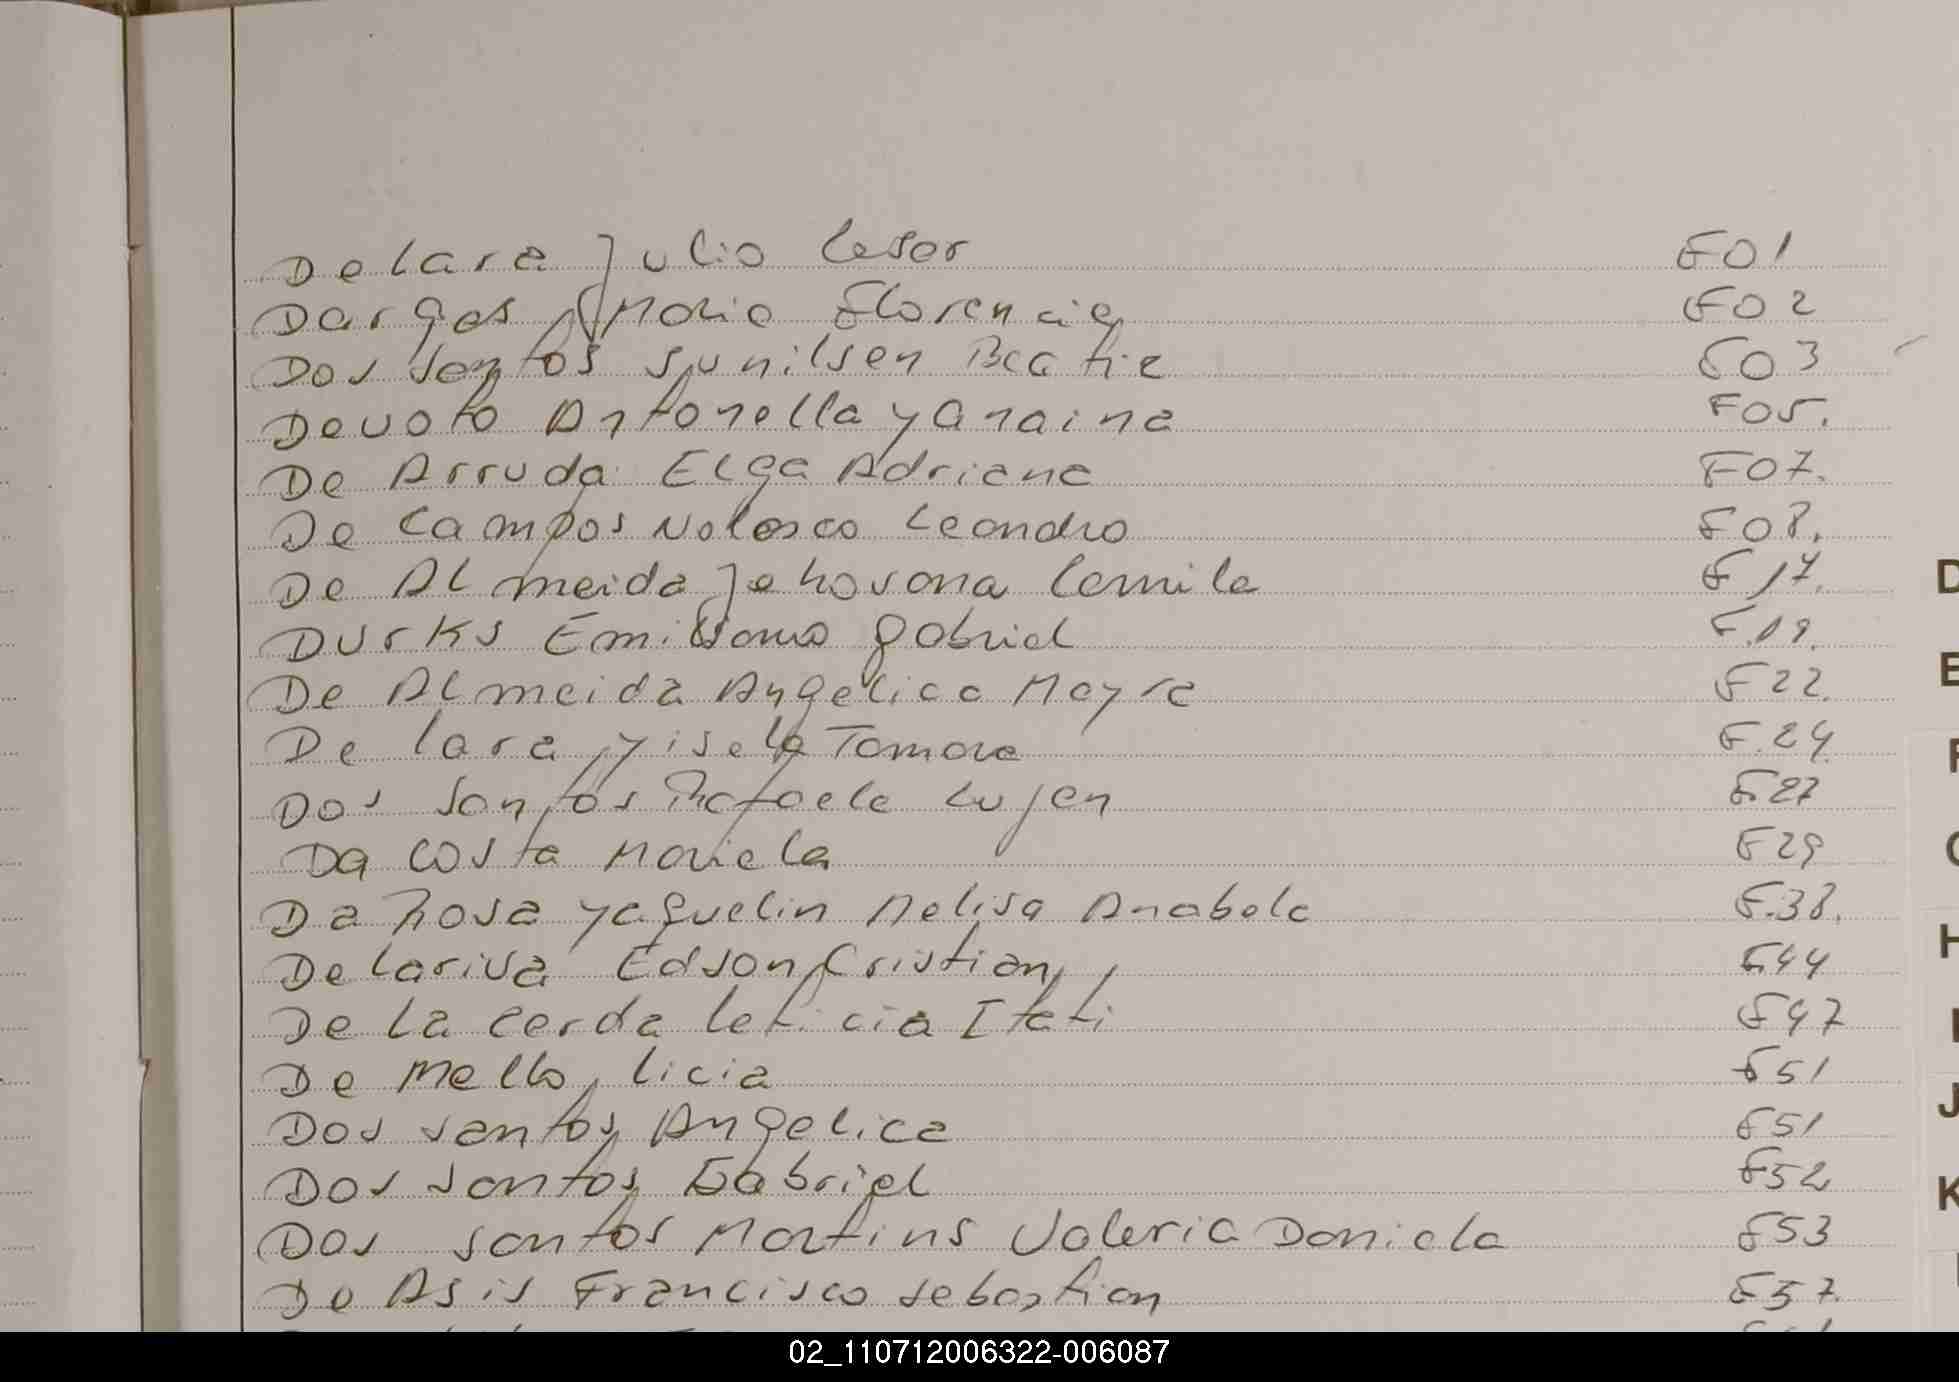 De Lara Julio Cesar F01
Dargas Maria Florencia F02
Dos Santos Sunilsen Beatriz F03
Devoto Antonella Yanaina F05.
De Arruda Elga Adriana F07.
De Campos Nolasco Leandro F08.
De Almeida Jehosana Camila F17.
Durks Emiliano Gabriel F.19.
De Almeida Angelica Mayra F22.
De Lara Yisela Tamara F.24.
Dos Santos Rafaela Lujan F27
Da Costa Mariela F29
Da Rosa Yaquelin Melisa Anabela F.38.
De Lariva Edson Cristian F.44
De La Cerda Leticia Itati F47
De Mello, Licia F51
Dos Santos, Angelica F51
Dos Santos Gabriel F52
Dos Santos Martins Valeria Daniela F53
De Asis Francisco Sebastian F57.
D
E
F
H
J
K
02_110712006322-006087